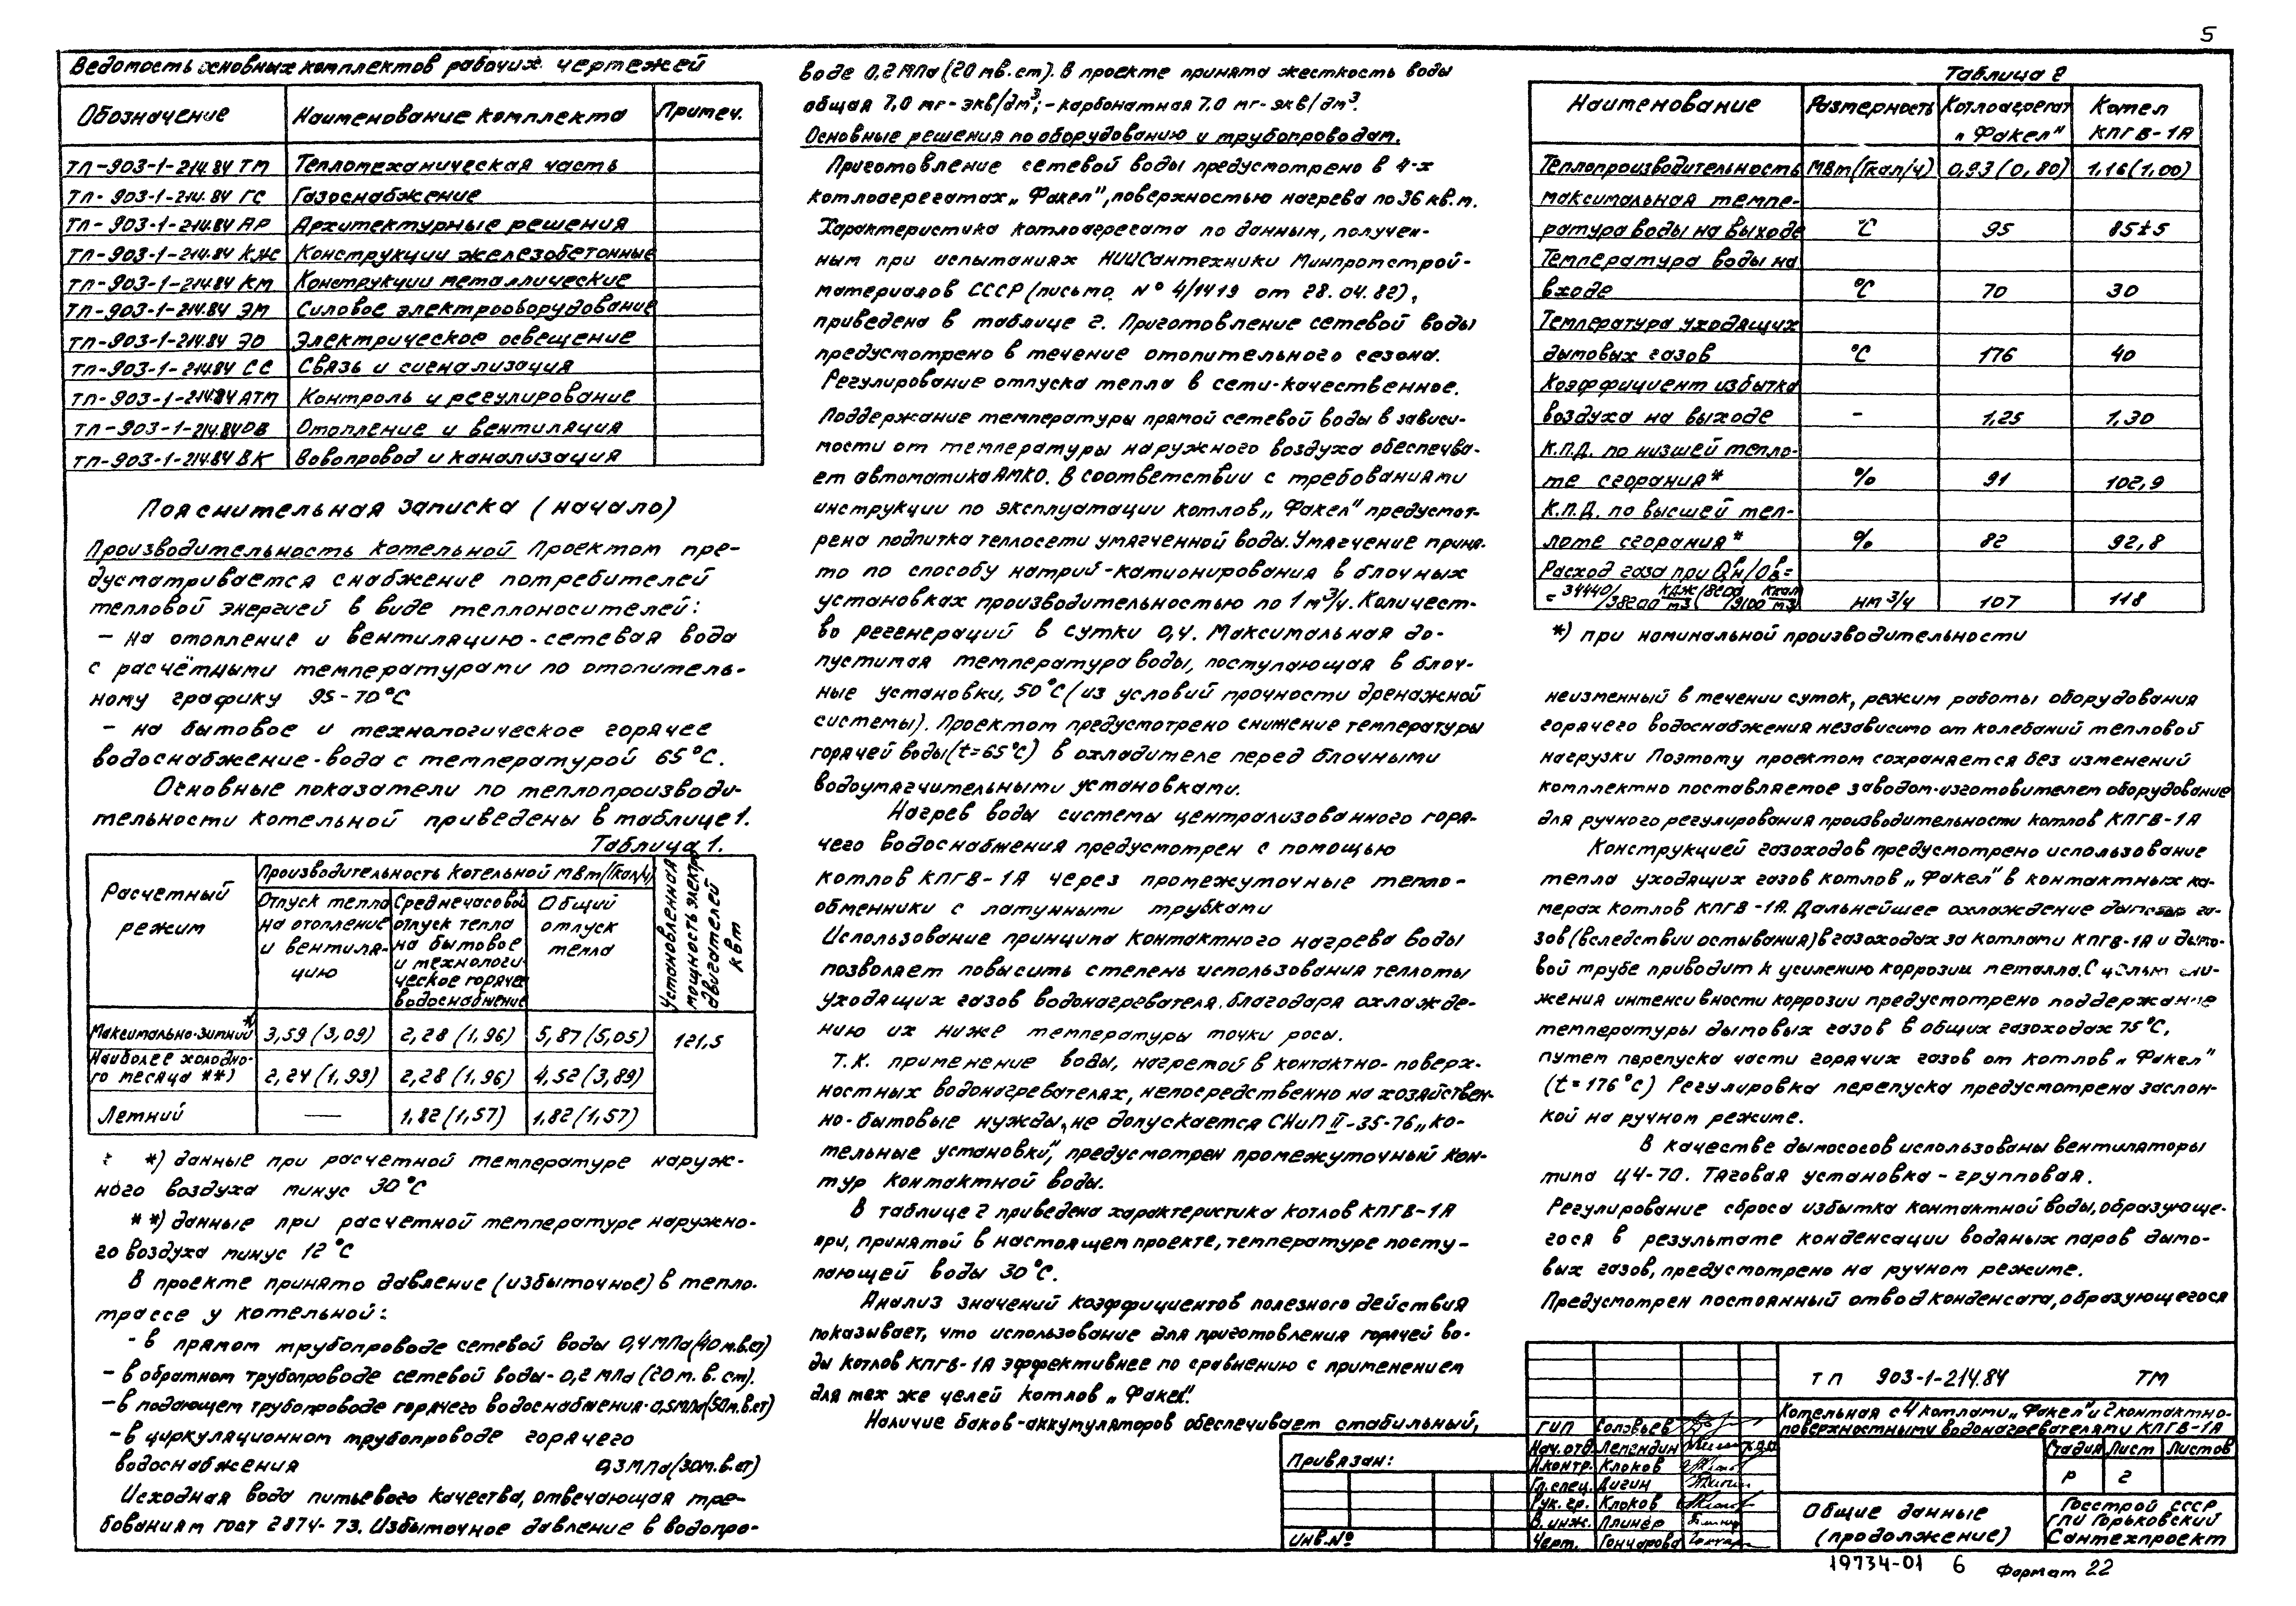 5
Ведомость основных комплектов рабочих чертежей
Обозначение Наименование комплекта Примеч.
ТП-903-1-214.84 ТМ Тепломеханическая часть
ТП-903-1-214.84 ГС Газоснабжение
ТП-903-1-214.84 АР Архитектурные решения
ТП-903-1-214.84 КЖ Конструкции железобетонные
ТП-903-1-214.84 КМ Конструкции металлические
ТП-903-1-214.84 ЭМ Силовое электрооборудование
ТП-903-1-214.84 ЭО Электрическое освещение
ТП-903-1-214.84 СС Связь и сигнализация
ТП-903-1-214.84 АТМ Контроль и регулирование
ТП-903-1-214.84 ОВ Отопление и вентиляция
ТП-903-1-214.84 ВК Вовопровод и канализация
Пояснительная записка (начало)
Производительность котельной Проектом пре-
дусматривается снабжение потребителей
тепловой энергией в виде теплоносителей:
- на отопление и вентиляцию-сетевая вода
с расчётными температурами по отопитель-
ному графику 95-70°С
- на бытовое и технологическое горячее
водоснабжение-вода с температурой 65°С.
Основные показатели по теплопроизводи-
тельности котельной приведены в таблице 1.
Таблица 1.
Расчетный режим
Производительность котельной МВт(Гкал/ч)
Отпуск тепла на отопление и вентиля-цию
Среднечасовой отпуск тепла на бытовое и технологи-ческое горячее водоснабжение
Общий отпуск тепла
Установленная мощность электро двигателей кВт
Максимально-зимний *) 3,59 (3,09) 2,28 (1,96) 5,87 (5,05) 121,5
Наиболее холодно-
го месяца **) 2,24 (1,93) 2,28 (1,96) 4,52 (3,89)
Летний — 1,82 (1,57) 1,82 (1,57)
*) данные при расчетной температуре наруж-
ного воздуха минус 30°С
**) данные при расчетной температуре наружно-
го воздуха минус 12°С
В проекте принято давление (избыточное) в тепло-
трассе у котельной:
- в прямом трубопроводе сетевой воды 0,4 МПа (40 м.в.ст)
- в обратном трубопроводе сетевой воды- 0,2 МПа (20 м.в.ст).
- в подающем трубопроводе горячего водоснабжения-0,5МПа(50м.в.ст)
- в циркуляционном трубопроводе горячего
водоснабжения 0,3МПа(30м.в.ст)
Исходная вода питьевого качества, отвечающая тре-
бованиям ГОСТ 2874-73. Избыточное давление в водопро-
воде 0,2 МПа (20 мв.ст). В проекте принята жесткость воды
общая 7,0 мг-экв/дм³;-карбонатная 7,0 мг-экв/дм³.
Основные решения по оборудованию и трубопроводам.
Приготовление сетевой воды предусмотрено в 4-х
котлоагрегатах „Факел", поверхностью нагрева по 36 кв.м.
Характеристика котлоагрегата по данным, получен-
ным при испытаниях НИИСантехники Минпромстрой-
материалов СССР (письмо № 4/1419 от 28.04.82),
приведена в таблице 2. Приготовление сетевой воды
предусмотрено в течение отопительного сезона.
Регулирование отпуска тепла в сети-качественное.
Поддержание температуры прямой сетевой воды в зависи-
мости от температуры наружного воздуха обеспечива-
ет автоматика АМКО. В соответствии с требованиями
инструкции по эксплуатации котлов „Факел" предусмот-
рена подпитка теплосети умягченной воды. Умягчение приня-
то по способу натрий-катионирования в блочных
установках производительностью по 1 м³/ч. Количест-
во регенераций в сутки 0,4. Максимальная до-
пустимая температура воды, поступающая в блоч-
ные установки, 50°С (из условий прочности дренажной
системы). Проектом предусмотрено снижение температуры
горячей воды (t=65°С) в охладителе перед блочными
водоумягчительными установками.
Нагрев воды системы централизованного горя-
чего водоснабжения предусмотрен с помощью
котлов КПГВ-1А через промежуточные тепло-
обменники с латунными трубками
Использование принципа контактного нагрева воды
позволяет повысить степень использования теплоты
уходящих газов водонагревателя. благодаря охлажде-
нию их ниже температуры точки росы.
Т.К. применение воды, нагретой в контактно-поверх-
ностных водонагревателях, непосредственно на хозяйствен-
но-бытовые нужды, не допускается СНиП II-35-76 „Ко-
тельные установки", предусмотрен промежуточный кон-
тур контактной воды.
В таблице 2 приведена характеристика котлов КПГВ-1А
при, принятой в настоящем проекте, температуре посту-
пающей воды 30°С.
Анализ значений коэффициентов полезного действия
показывает, что использование для приготовления горячей во-
ды котлов КПГВ-1А эффективнее по сравнению с применением
для тех же целей котлов „Факел".
Наличие баков-аккумуляторов обеспечивает стабильный,
Таблица 2
Наименование Размерность Котлоагрегат „Факел" Котел КПГВ-1А
Теплопроизводительность МВт(Гкал/ч) 0,93 (0,80) 1,16(1,00)
Максимальная темпе-
ратура воды на выходе °С 95 85±5
Температура воды на
входе °С 70 30
Температура уходящих
дымовых газов °С 176 40
Коэффициент избытка
воздуха на выходе - 1,25 1,30
К.П.Д. по низшей тепло-
те сгорания* % 91 102,9
К.П.Д. по высшей теп-
лоте сгорания* % 82 92,8
Расход газа при Qвн/Qв=
= 34440/38200 кДж/м3 (8200/9100 ккал/м3) нм³/ч 107 118
*) при номинальной производительности
неизменный в течении суток, режим работы оборудования
горячего водоснабжения независимо от колебаний тепловой
нагрузки Поэтому проектом сохраняется без изменений
комплектно поставляемое заводом-изготовителем оборудование
для ручного регулирования производительности котлов КПГВ-1А
Конструкцией газоходов предусмотрено использование
тепла уходящих газов котлов „Факел" в контактных ка-
мерах котлов КПГВ-1А. Дальнейшее охлаждение дымовых га-
зов (вследствии остывания) в газоходах за котлами КПГВ-1А и дымо-
вой трубе приводит к усилению коррозии металла. С целью сни-
жения интенсивности коррозии предусмотрено поддержание
температуры дымовых газов в общих газоходах 75°С,
путем перепуска части горячих газов от котлов „Факел"
(t=176°С) Регулировка перепуска предусмотрена заслон-
кой на ручном режиме.
В качестве дымососов использованы вентиляторы
типа Ц4-70. Тяговая установка - групповая.
Регулирование сброса избытка контактной воды, образующе-
гося в результате конденсации водяных паров дымо-
вых газов, предусмотрено на ручном режиме.
Предусмотрен постоянный отвод конденсата, образующегося
Привязан:
ИНВ.№
ГИП Соловьев
Нач.отд. Лепендин
Н.контр. Клоков
Гл.спец. Дигин
Рук.гр. Клоков
В.инж. Плинер
Черт. Гончарова
ТП 903-1-214.84 ТМ
Котельная с 4 котлами „Факел" и 2 контактно-
поверхностными водонагревателями КПГВ-1А
Стадия Лист Листов
Р 2
Общие данные
(продолжение)
Госстрой СССР
ГПИ Горьковский
Сантехпроект
19734-01 6 Формат 22